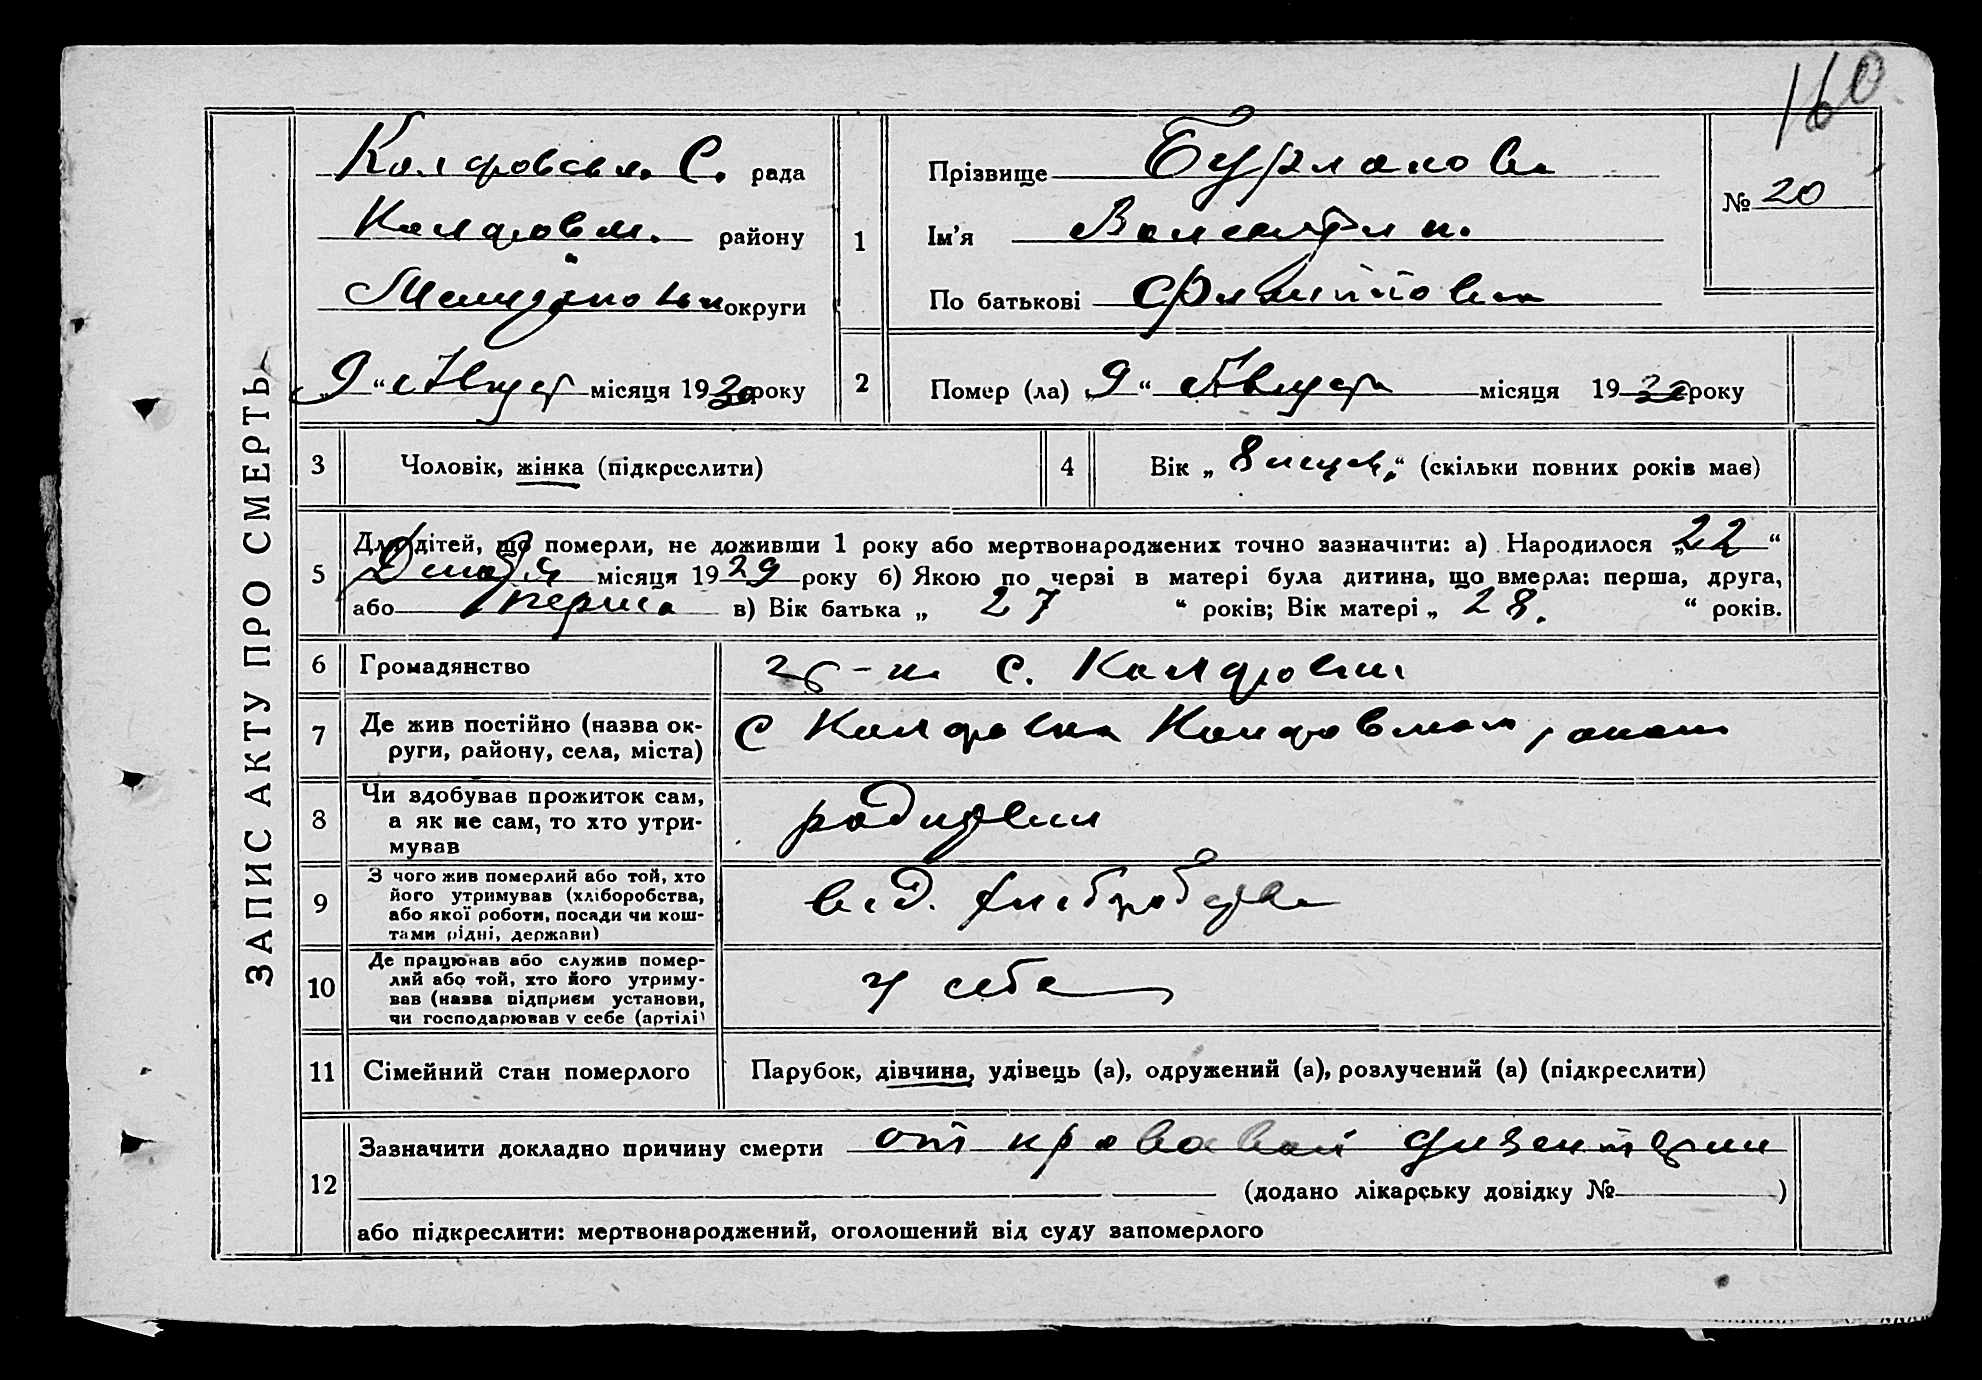 160
ЗАПИС АКТУ ПРО СМЕРТЬ
Колфовськ. С. рада
Колфовск. району
округи
"9" Август місяця 1930 року
1
Прізвище Бурлакова
Ім'я Валентин.
По батькові Филипповна
№ 20
2
Помер (ла) "9" Августа місяця 1930 року
3 Чоловік, жінка (підкреслити)
4 Вік „ 8 месяц. “ (скільки повних років має)
5 Для дітей, що померли, не доживши 1 року або мертвонароджених точно зазначити: а) Народилося „22“
Декабря місяця 1929 року б) Якою по черзі в матері була дитина, що вмерла: перша, друга,
або перша в) Вік батька „ 27 “ років; Вік матері „ 28. “ років.
6 Громадянство гр-ка с.
7 Де жив постійно (назва ок-
руги, району, села, міста)
С
8 Чи здобував прожиток сам,
а як не сам, то хто утри-
мував
родители
9 З чого жив померлий або той, хто
його утримував (хліборобства,
або якої роботи, посади чи кош-
тами рідні, держави)
від. хліборобства
10 Де працював або служив помер-
лий або той, хто його утриму-
вав (назва підприєм установи,
чи господарював у себе (артілі)
у себе
11 Сімейний стан померлого Парубок, дівчина, удівець (а), одружений (а), розлучений (а) (підкреслити)
12 Зазначити докладно причину смерти от кровавой дизентерии
(додано лікарську довідку № )
або підкреслити: мертвонароджений, оголошений від суду запомерлого